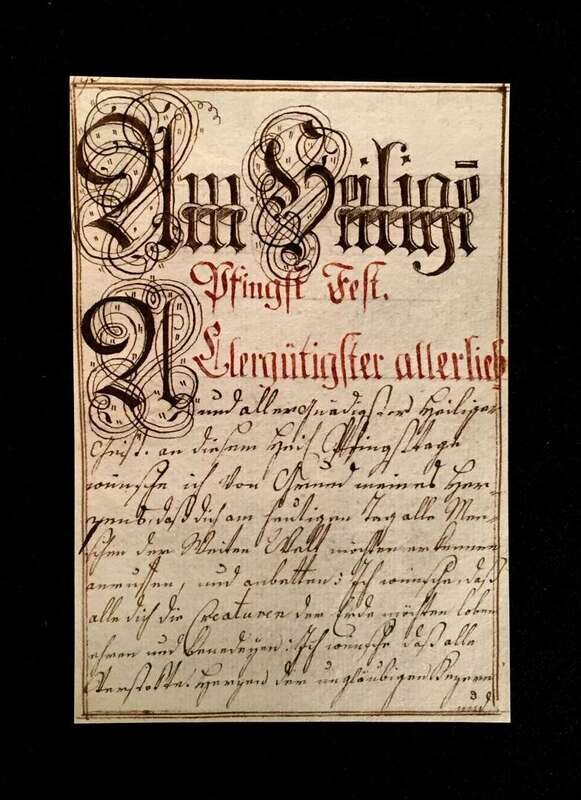 Am Heiligē
Pfingst Fest.
ALlergütigster allerlieb
und allergnädigster Heiliger
Geist. an diesem Heil Pfingsttage
wünsche ich von Grund meines Her-
zens, daß dich am heutigen Tag alle Men-
schen der Weiten Welt möchten erkennen
anruffen, und anbetten: Ich wünsche, daß
alle dich die Creaturen der Erde möchten loben
ehren und benedeyen: Ich wünsche daß alle
Verstokte Herzen der ungläubigen Kezeren
und